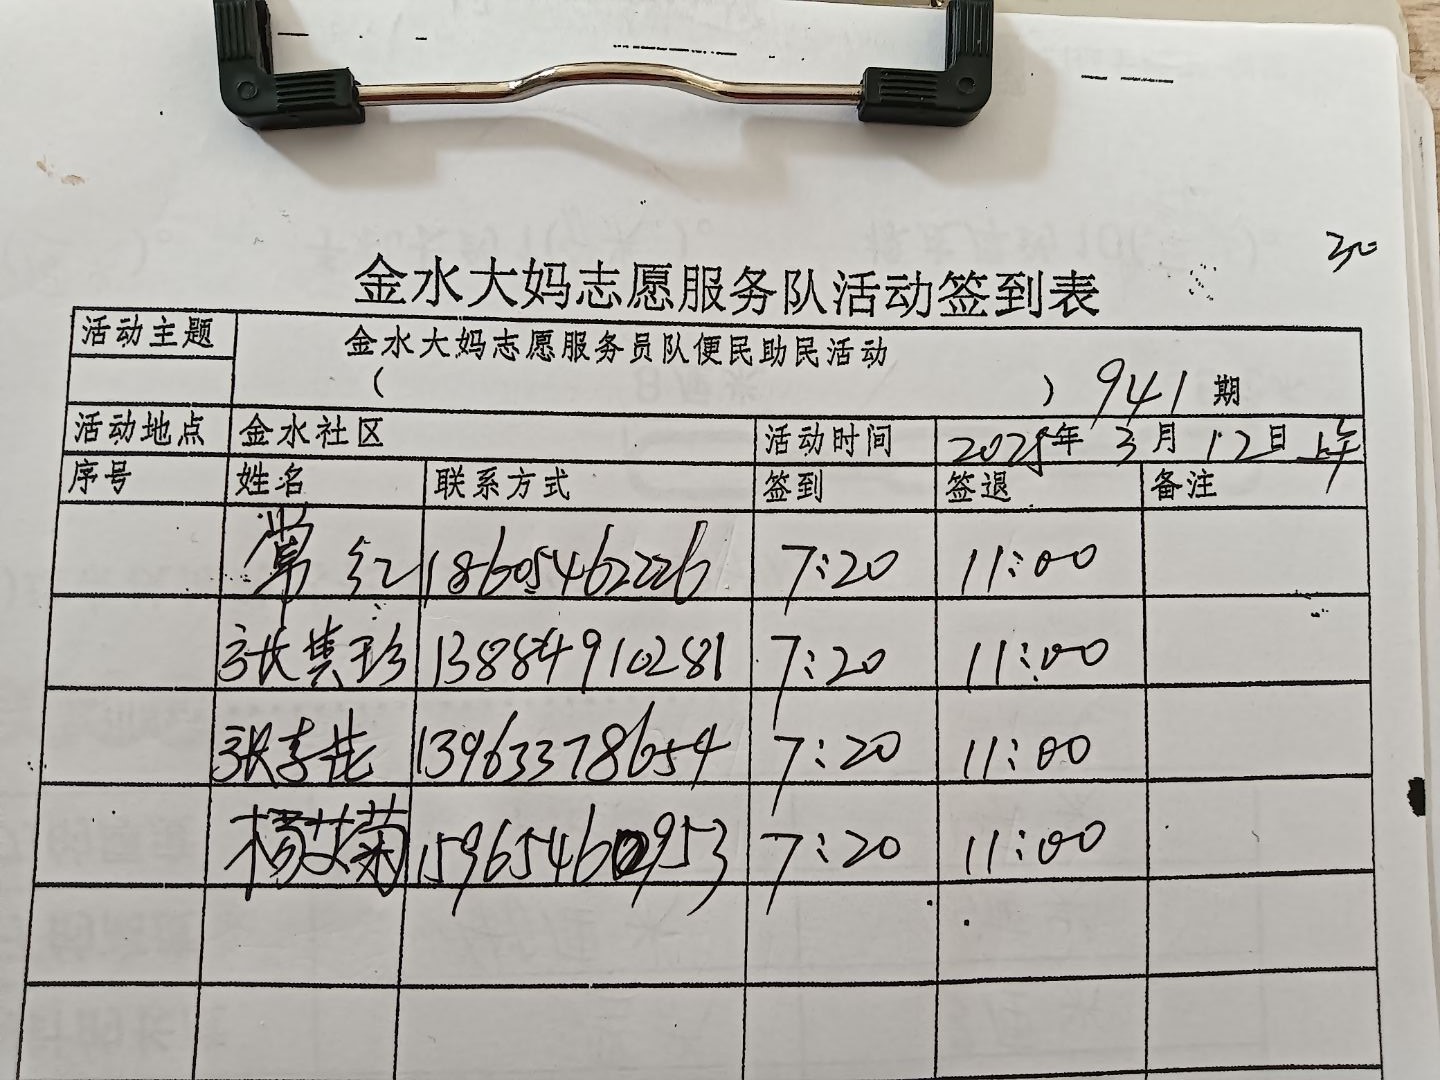 30
金水大妈志愿服务队活动签到表
活动主题 金水大妈志愿服务员队便民助民活动
( ) 941 期
活动地点 金水社区 活动时间 2025年 3月 12日 上午
序号 姓名 联系方式 签到 签退 备注
常红 18605462226 7:20 11:00
张其珍 13884910281 7:20 11:00
张李花 13963378654 7:20 11:00
杨艾菊 15965460953 7:20 11:00